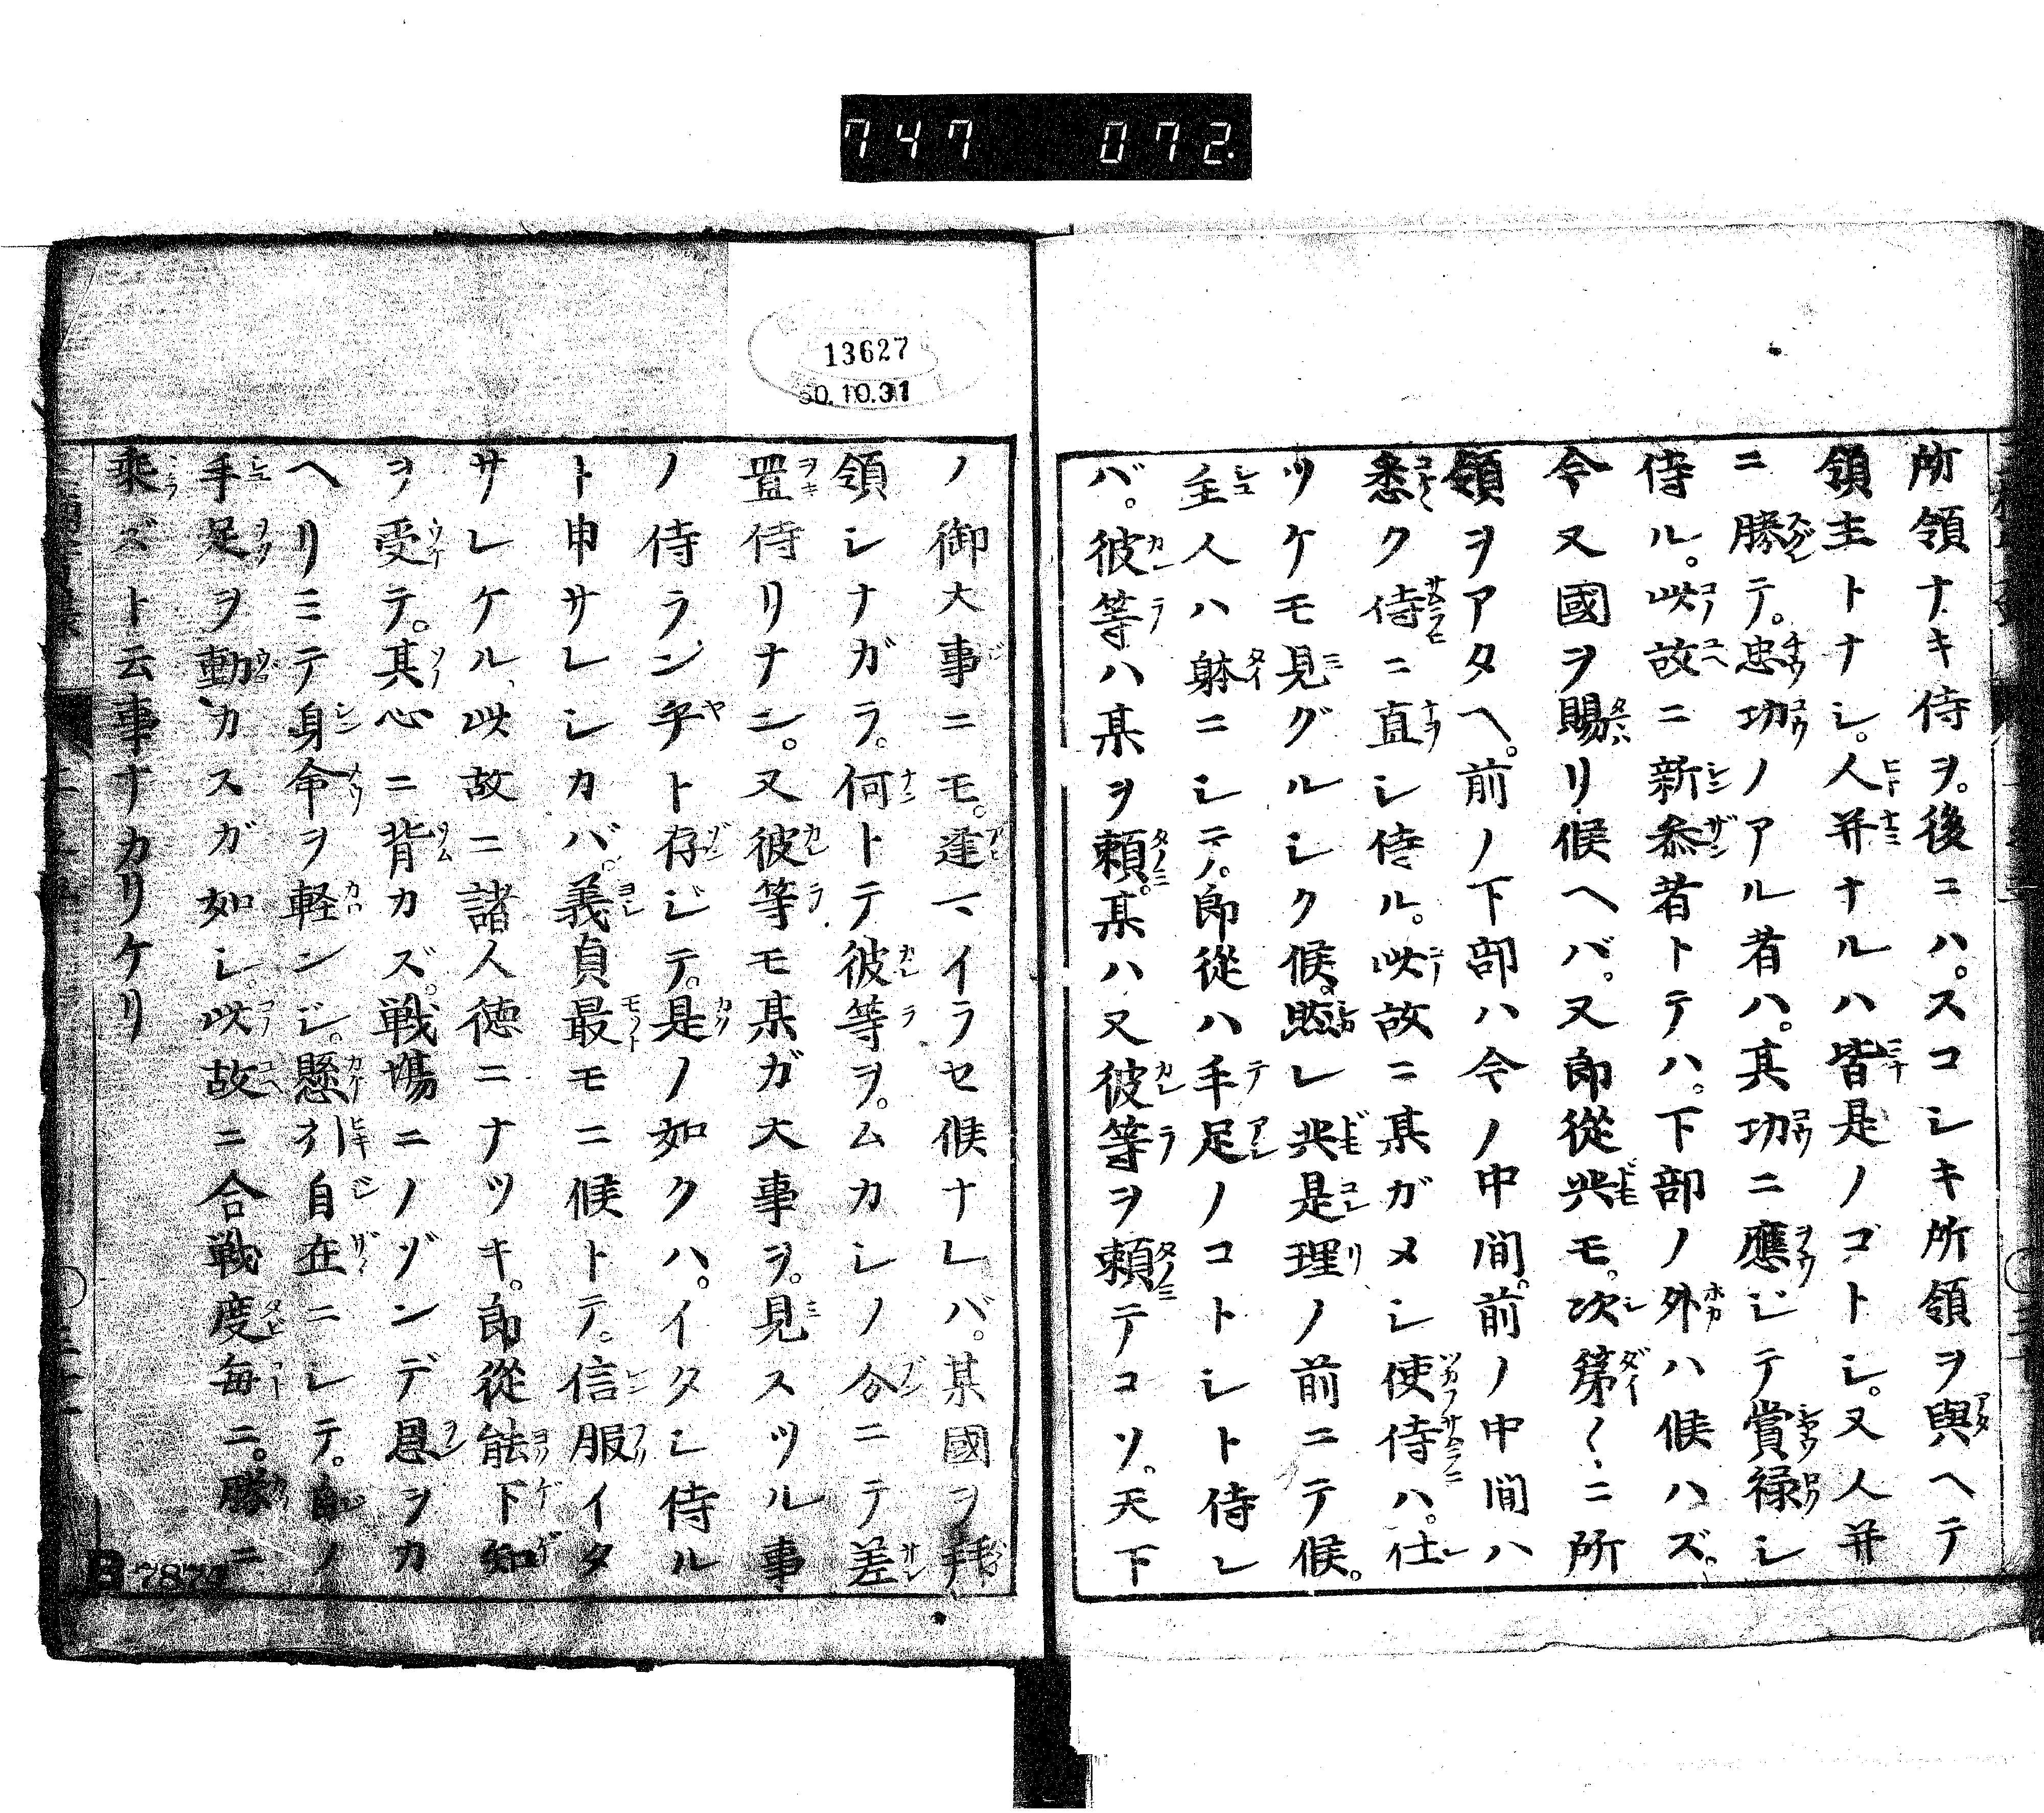 747 072.
所領ナキ侍ヲ。後コハ。スコシキ所領ヲ與ヘテ
領主トナシ。人并ナルハ皆是ノゴトシ。又人并
ニ勝テ。忠功ノアル者ハ。其功ニ應ジテ賞禄シ
侍ル。此故ニ新参者トテハ。下部ノ外ハ候ハズ。
今又國ヲ賜リ候ヘバ。又郎從共モ。次第〱ニ所
領ヲアタヘ。前ノ下部ハ今ノ中間。前ノ中間ハ
悉ク侍ニ直シ侍ル。此故ニ某ガメシ使侍ハ。仕
ツケモ見グルシク候。然レ共是理ノ前ニテ候。
主人ハ躰ニシテ。郎從ハ手足ノコトシト侍レ
バ。彼等ハ某ヲ頼。某ハ又彼等ヲ頼テコソ。天下
ノ御大事ニモ。逢マイラセ候ナレバ。某國ヲ拜
領シナガラ。何トテ彼等ヲ。ムカシノ分ニテ差
置侍リナン。又彼等モ某ガ大事ヲ。見スツル事
ノ侍ラン乎ト存ジテ。是ノ如クハ。イタシ侍ル
ト申サレシカバ。義貞最モニ候トテ。信服イタ
サレケル、此故ニ諸人徳ニナツキ。郎從能下知
ヲ受テ。其心ニ背カズ。戦場ニノゾンデ恩ヲカ
ヘリミテ身命ヲ軽ンジ。懸引自在ニシテ。自ノ
手足ヲ動カスガ如シ。此故ニ合戦度毎ニ。勝ニ
乘ズト云事ナカリケリ
13627
50.10.31